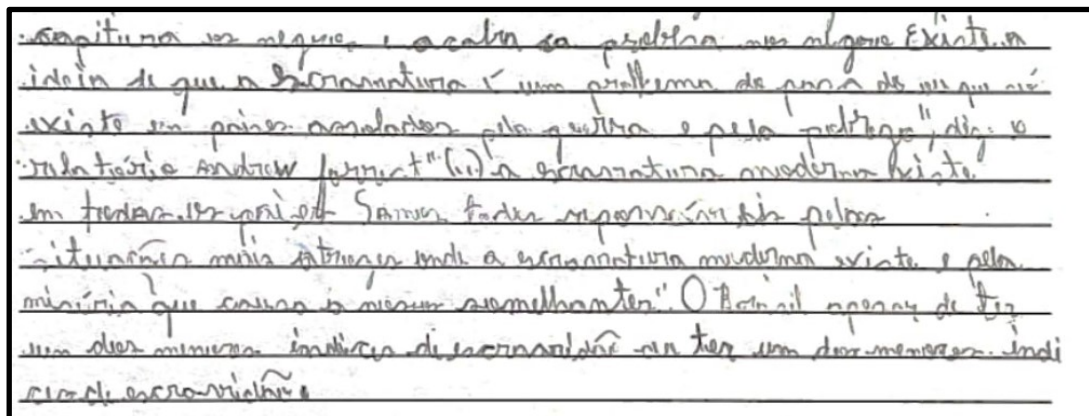 os negros e acaba na negros Existe a
ideia de que a escravatura é um problema do de que só
existe em paises assolados pela guerra e pela pobreza", diz o
relatório Andrew forrest "(...) a escravatura moderna existe
em todos os Somos todos responsáveis pelas
situações mais onde a escravatura moderna existe e pela
miséria que causa semelhantes". O Brasil apesar de ter
um dos menores indices de escravidão ter um dos menores indi
cios de escravidão.